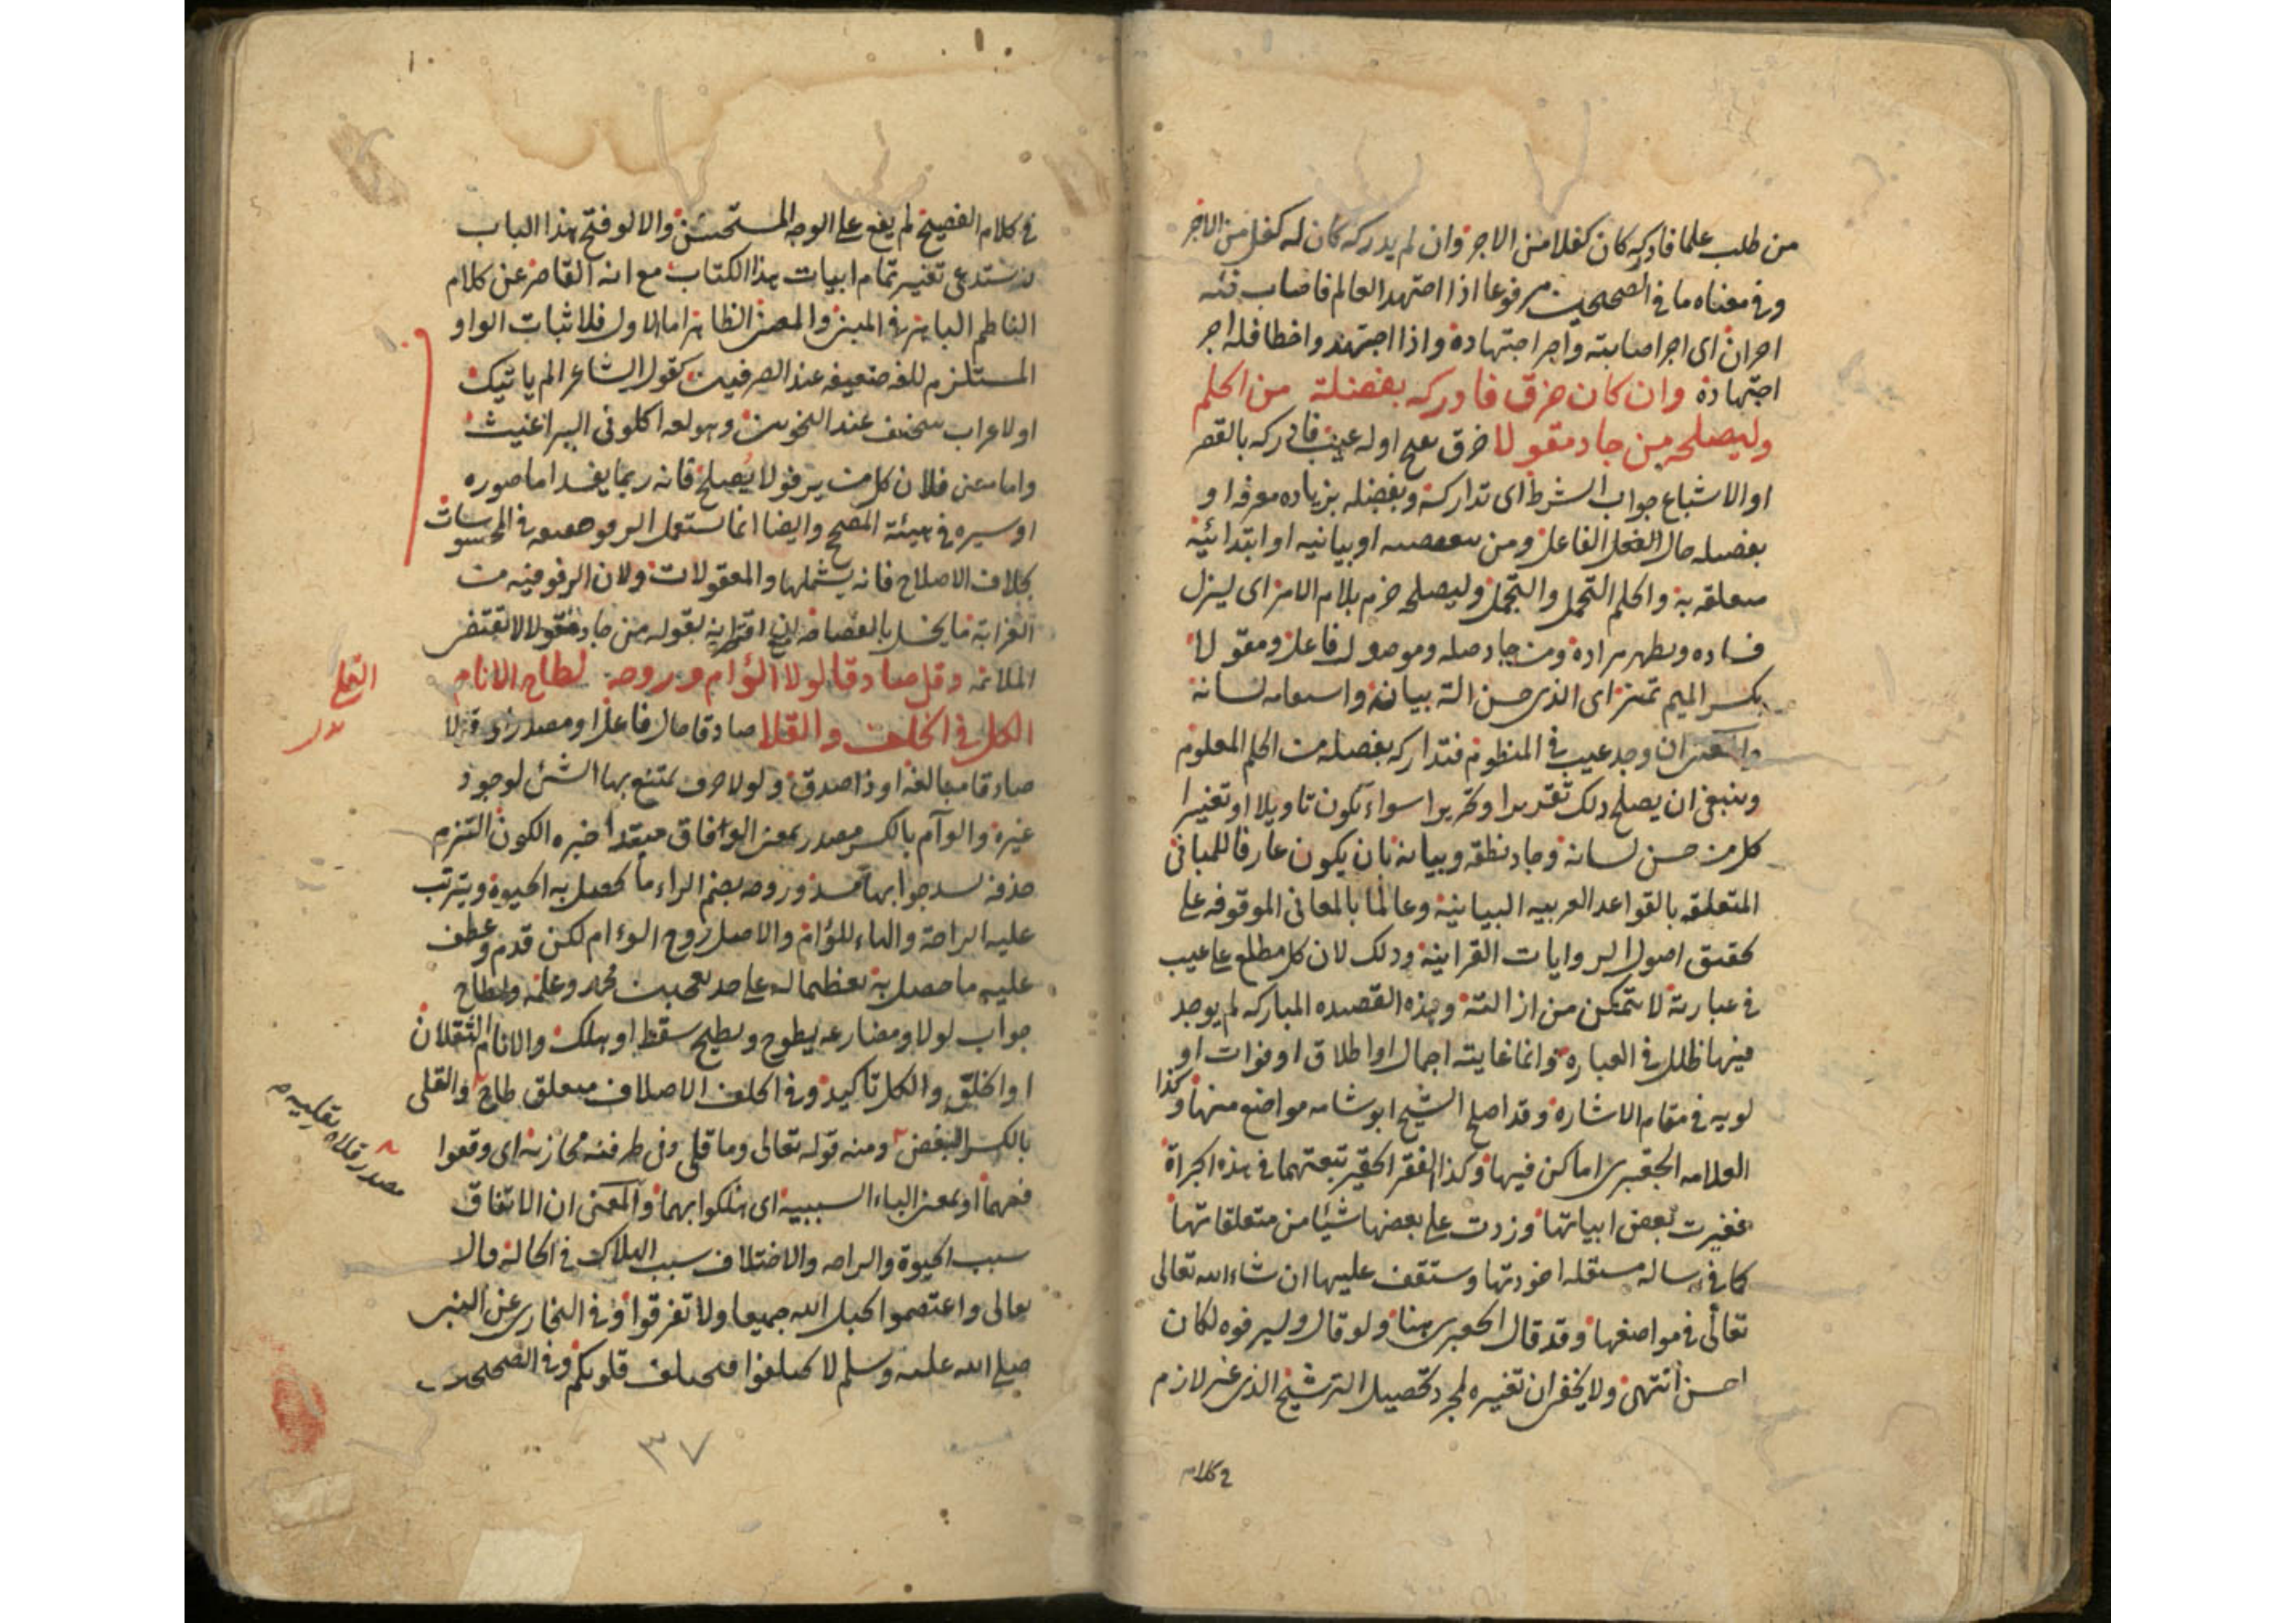 من طلب علما فادركه كان كفلا من الاجر وان لم يدركه كان له كفل من الاجر
وفي معناه ما في الصحيحين مرفوعا اذا اجتهد العالم فاصاب فله
اجران اى اجر اصابته واجر اجتهاده واذا اجتهد واخطا فله اجر
اجتهاده وان كان خرق فادركه بفضلة من الحلم
وليصلحه من جاد مقولا خرق بفتح اوله عيب فادركه بالقصر
او الاشباع جواب الشرط اى تداركه وبفضله بزياده معرفه او
بفضله حال الفعل الفاعل ومن تبعيضيه او بيانيه او ابتدائية
متعلقه به والحلم التحمل والتجمل وليصلحه جزم بلام الامر اى ليزل
فساده ويظهر مراده ومن جاد صله وموصول فاعل ومقولا
بكسر الميم تمييز اى الذى حسن الة بيانه واستقامه لسانه
والمعنى ان وجد عيب في المنظومه فتداركه بفضله من الحلم المعلوم
وينبغي ان يصلح ذلك تقديرا وتحريرا سواء يكون تاويلا او تغييرا
كل من حسن لسانه وجاد نطقه وبيانه بان يكون عارفا للمباني
المتعلقه بالقواعد العربيه البيانية وعالما بالمعاني الموقوفه على
تحقيق اصول الروايات القرانية وذلك لان كل مطلع على عيب
في عبارة لا يتمكن من ازالته وهذه القصيده المباركه لم يوجد
فيها خلل في العباره وانما غايته اجمال او اطلاق او فوات او
لويه في مقام الاشاره وقد اصلح الشيخ ابو شامه مواضع منها وكذا
العلامه الجعبرى اماكن فيها وكذا الفقير الحقير تبعتهما في هذه الجراة
فغيرت بعض ابياتها وزدت على بعضها شيئا من متعلقاتها
كما في رساله مستقله افردتها وستقف عليها ان شاء الله تعالى
تعالى في مواضعها وقد قال الجعبرى هنا ولو قال وليرفوه لكان
احسن انتهى ولا يخفى ان تغييره لمجرد تحصيل الترشيح الذى غير لازم
في كلام
في كلام الفصيح لم يقع على الوجه المستحسن والا لو فتح هذا الباب
لاستدعى تغيير تمام ابيات هذا الكتاب مع انه القاصر عن كلام
الناظم الباهر في المبنى والمعنى الظاهر اما الاول فلاثبات الواو
المستلزم للغه ضعيفه عند الصرفيين كقول الشاعر الم ياتيك
او لاعراب سخيف عند النحويين وهو لغه اكلوني البراغيث
واما معنى فلان كل من يرفو لا يصلح فانه ربما يفسد اما صوره
او سيره في هيئة المصلح وايضا انما يستعمل الرفو حقيقه في المحسوسات
بخلاف الاصلاح فانه يشملها والمعقولات ولان الرفو فيه من
الغرابة ما يخل بالفصاحه لدى اقترانه بقوله من جاد مقولا لاتقتضى
الملائمه وقل صادقا لولا الوئام وروحه لطاح الانام
الكل في الخلف والقلا صادقا حال فاعل او مصدر اى قولا
صادقا مبالغه او ذا صدق ولولا حرف يمتنع بها الشئ لوجود
غيره والوآم بالكسر مصدر بمعنى الوافاق مبتدا خبره الكون التزم
حذفه لسد جوابها مسده وروحه بضم الراء ما تحصل به الحيوة ويترتب
عليه الراحة والهاء للوئام والاصل روح الوءام لكن قدم وعطف
عليه ما حصل به تعظيما له على حد يعجبني محمد وعلمه ولطاح
جواب لولا ومضارعه يطوح ويطيح سقط او هلك والانام الثقلان
او الخلق والكل تاكيد وفي الخلف الاختلاف متعلق طاح والقلى
بالكسر البغض ومنه قوله تعالى وما قلى وفي ظرفيه مجازية اى وقعوا
فيهما او بمعنى الباء السببيه اى هلكوا بهما والمعنى ان الاتفاق
سبب الحيوة والراحه والاختلاف سبب الهلاك في الحال والمال
تعالى واعتصموا بحبل الله جميعا ولا تفرقوا وفي البخارى عن النبي
صلى الله عليه وسلم لا تختلفوا فتختلف قلوبكم وفي الصحيحين
مصدر قلاه يقليه
٣٧